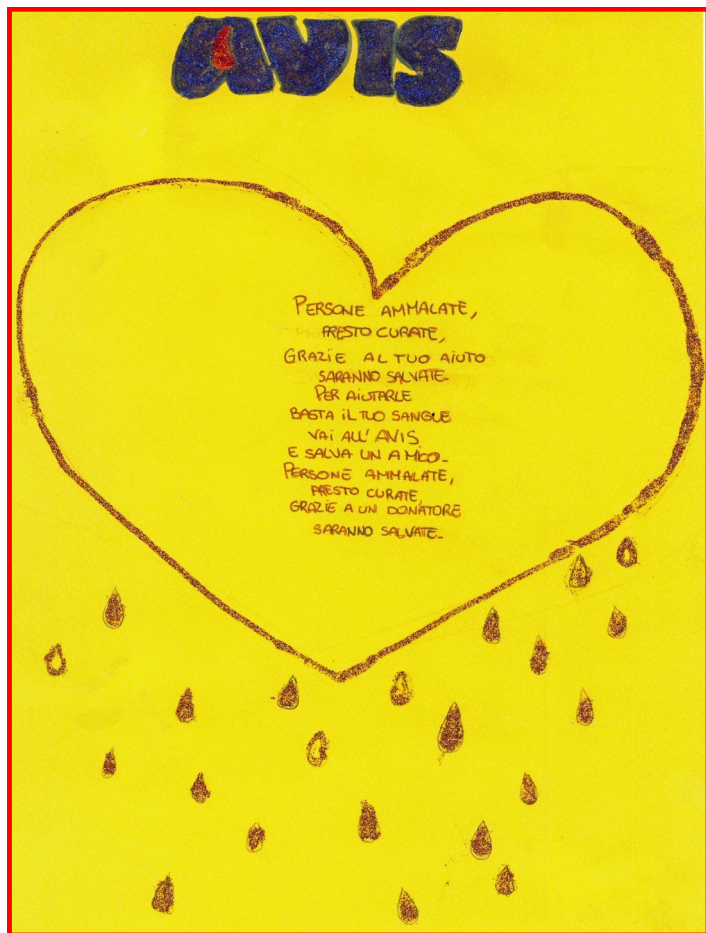 AVIS
PERSONE AMMALATE,
PRESTO CURATE,
GRAZIE AL TUO AIUTO
SARANNO SALVATE.
PER AIUTARLE
BASTA IL TUO SANGUE
VAI ALL'AVIS
E SALVA UN AMICO.
PERSONE AMMALATE,
PRESTO CURATE,
GRAZIE A UN DONATORE
SARANNO SALVATE.